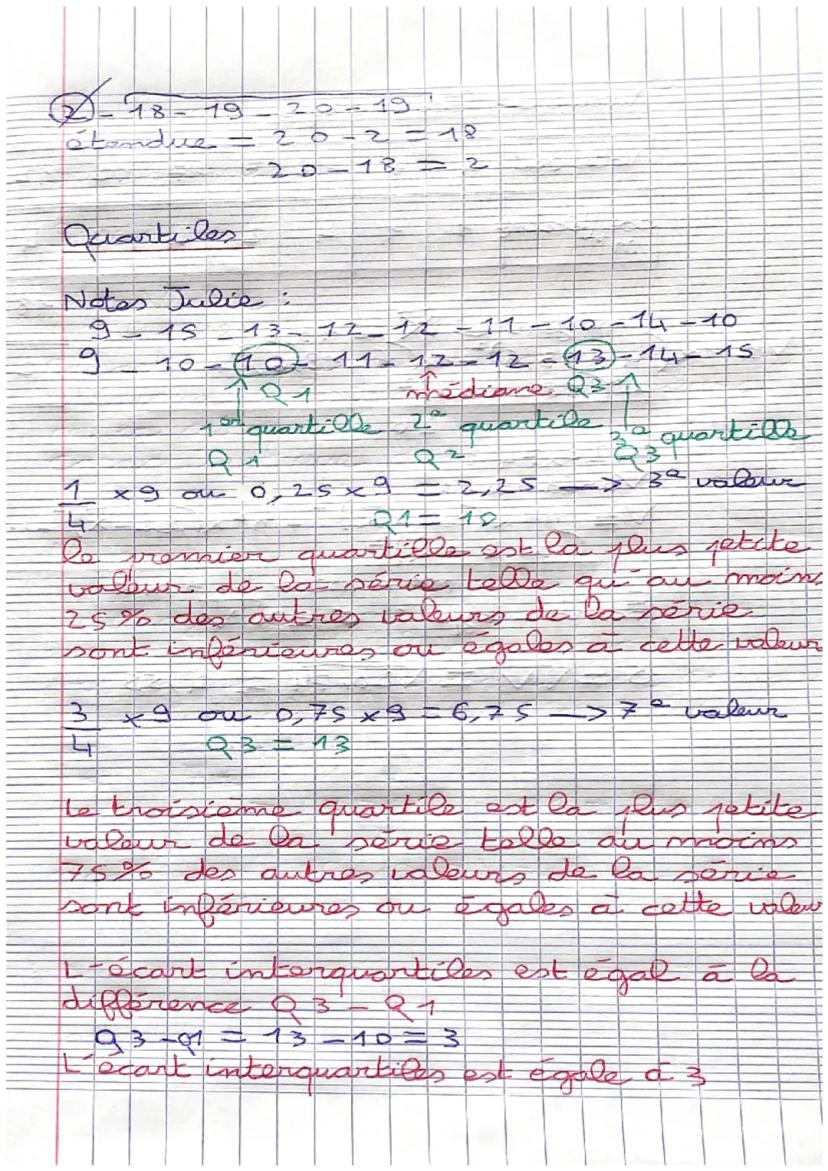 2 - 18 - 19 - 20 - 19
étendue = 20 - 2 = 18
20 - 18 = 2
Quartiles
Notes Julie :
9 - 15 - 13 - 12 - 12 - 11 - 10 - 14 - 10
9 - 10 - 10 - 11 - 12 - 12 - 13 - 14 - 15
Q1 médiane Q3
1er quartille 2e quartile 3e quartille
Q1 Q2 Q3
1/4 × 9 ou 0,25 × 9 = 2,25 → 3e valeur
Q1 = 10
le premier quartille est la plus petite
valeur de la série telle qu'au moins
25 % des autres valeurs de la série
sont inférieures ou égales à cette valeur
3/4 × 9 ou 0,75 × 9 = 6,75 → 7e valeur
Q3 = 13
Le troisième quartile est la plus petite
valeur de la série telle au moins
75% des autres valeurs de la série
sont inférieures ou égales à cette valeur
L'écart interquartiles est égal à la
différence Q3 - Q1
Q3 - Q1 = 13 - 10 = 3
L'écart interquartiles est égale à 3